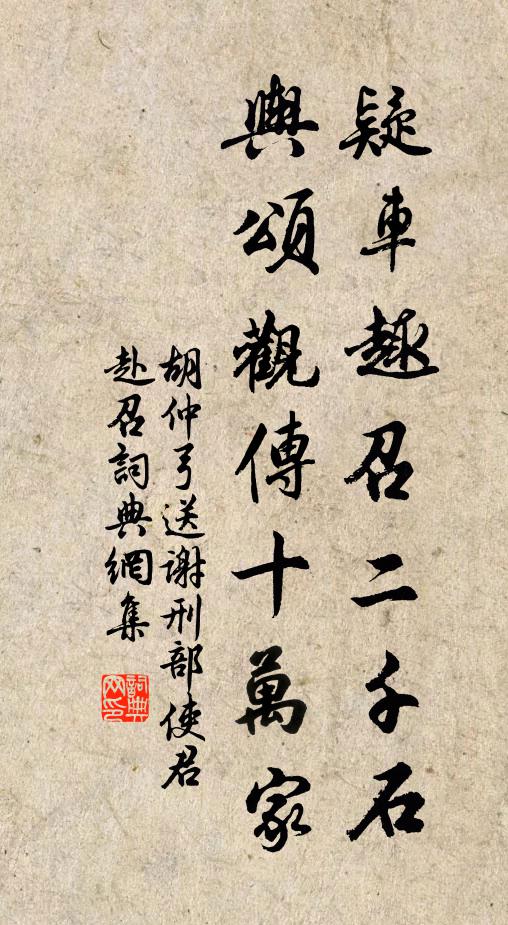 疑車趣召二千石
輿頌觀傳十萬家
胡仲弓送謝刑部使君
赴召詞典網集
詞典
网印